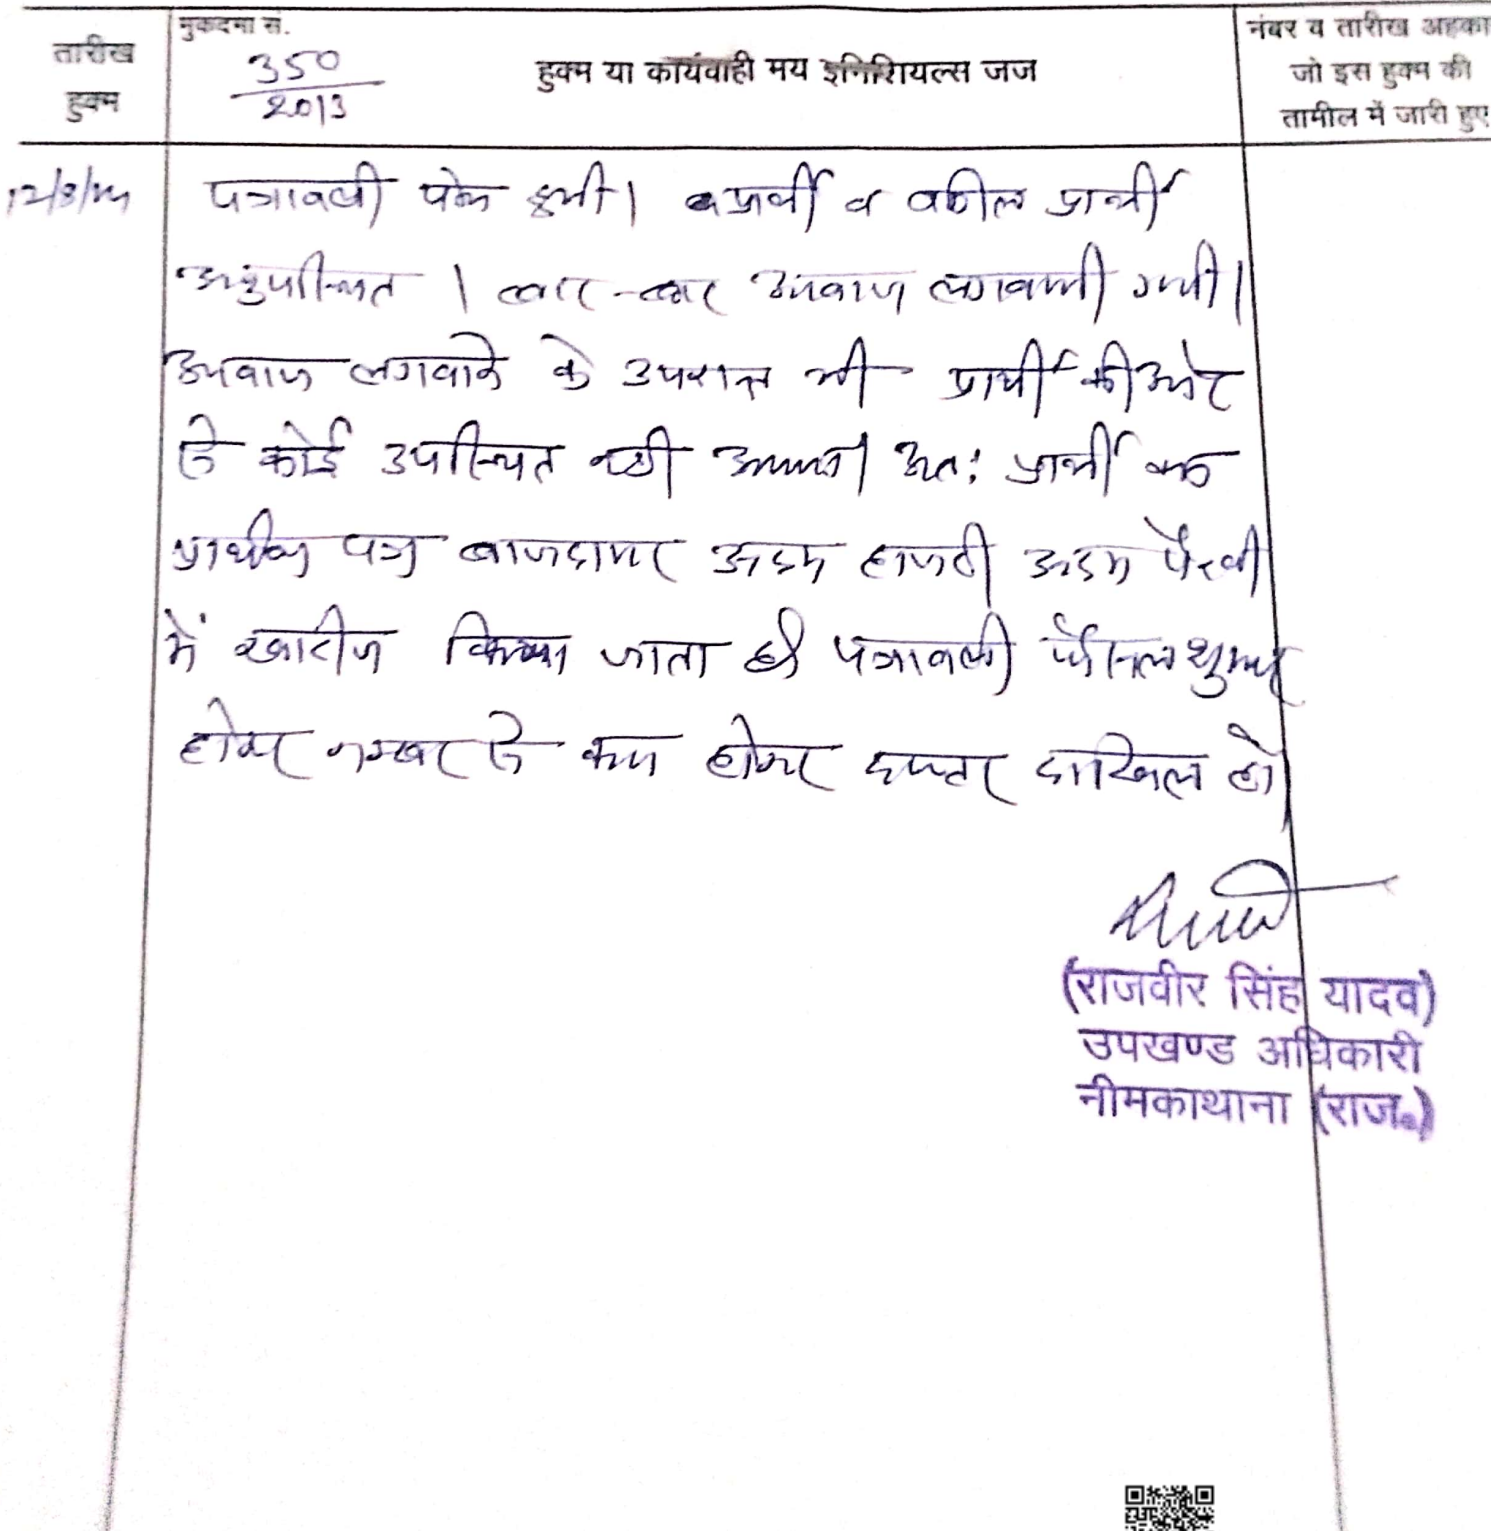 मुकदमा सं.
तारीख हुक्म
350/2013
हुक्म या कार्यवाही मय इनिशियल्स जज
नंबर व तारीख अहका
जो इस हुक्म की
तामील में जारी हुए
पत्रावली पेश हुयी। प्रार्थी व वकील प्रार्थी
अनुपस्थित। बार-बार आवाज लगवायी गयी।
आवाज लगवाने के उपरान्त भी प्रार्थी की ओर
से कोई उपस्थित नही आया। अतः प्रार्थी का
प्रार्थना पत्र बाजदायर अदम हाजरी अदम पैरवी
में खारीज किया जाता है। पत्रावली फैसल शुमार
होकर नम्बर से कम होकर दफ्तर दाखिल हो।
(राजवीर सिंह यादव)
उपखण्ड अधिकारी
नीमकाथाना (राज०)